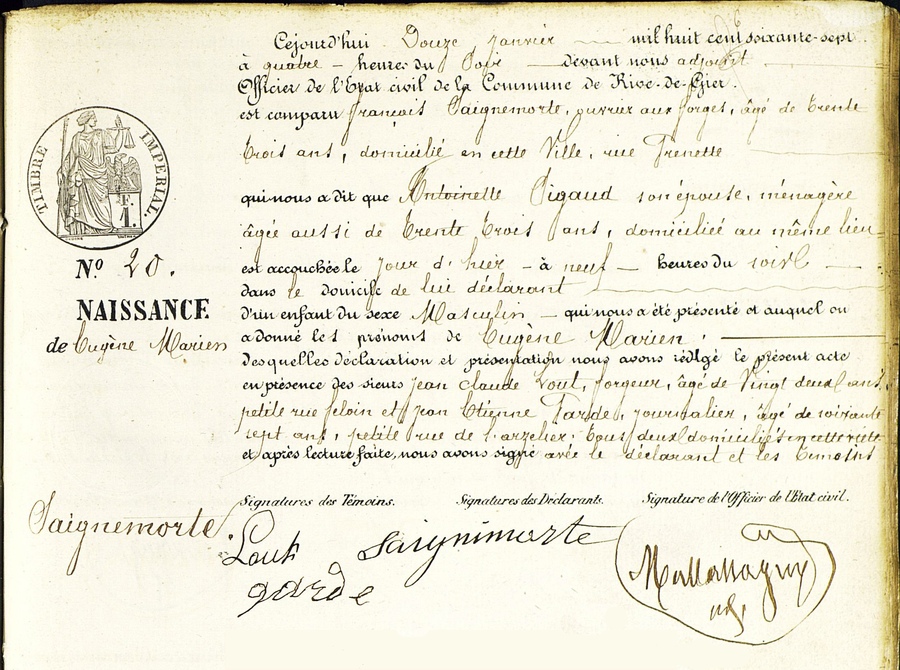 Cejourd'hui Douze janvier mil huit cent soixante-sept
à quatre heures du Soir devant nous adjoint
Officier de l'Etat civil de la Commune de Rive-de-Gier.
est comparu françois Saignemorte, ouvrier aux forges, âgé de trente
trois ans, domicilié en cette Ville, rue Grenette
qui nous a dit que Antoinette Pigaud son épouse, ménagère
âgée aussi de trente trois ans, domiciliée au même lieu
est accouchée le jour d'hier à neuf heures du soir
dans le domicile de lui déclarant
d'un enfant du sexe Masculin qui nous a été présenté et auquel on
a donné les prénoms de Eugène Marien.
desquelles déclaration et présentation nous avons rédigé le présent acte
en présence des sieurs jean Claude Lout, forgeur, âgé de Vingt deux ans,
petite rue et jean Etienne Garde, journalier, âgé de soixante
sept ans, petite rue de l'arzelier, tous deux domiciliés en cette ville
et après lecture faite, nous avons signé avec le déclarant et les témoins
TIMBRE IMPERIAL
F. 1.
No 20.
NAISSANCE
de Eugène Marien
Saignemorte
Signatures des Témoins. Signatures des Déclarants. Signature de l'Officier de l'Etat civil.
Lout Saignimorte
garde